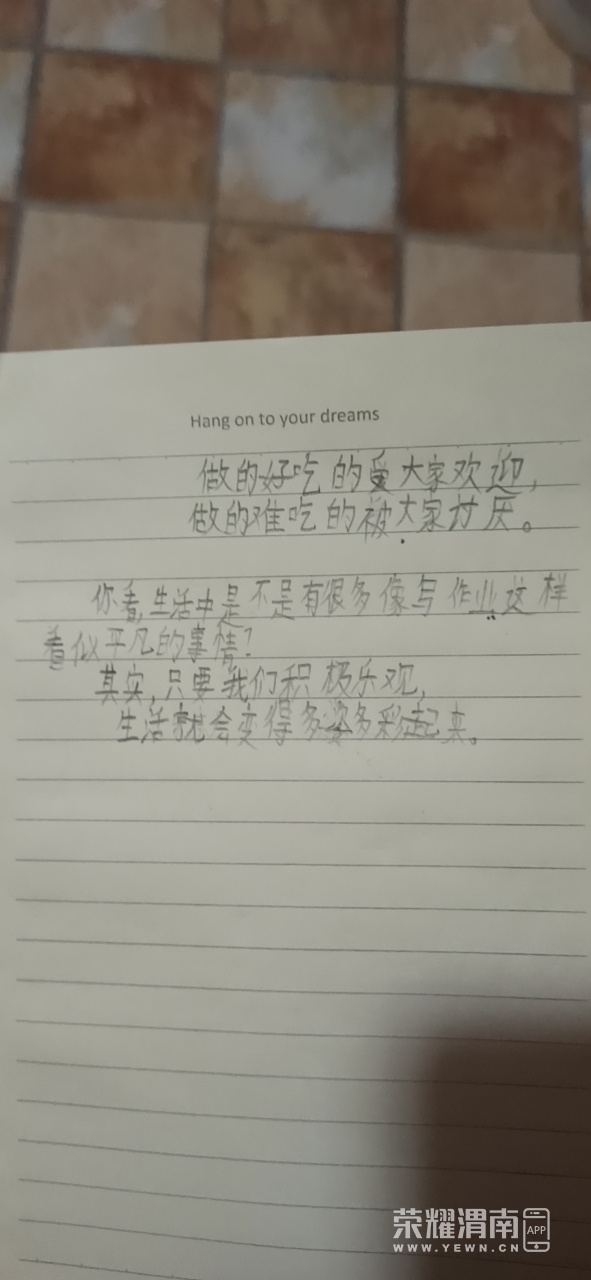 Hang on to your dreams
做的好吃的受大家欢迎,
做的难吃的被大家讨厌。
你看,生活中是不是有很多像写作业这样
看似平凡的事情?
其实,只要我们积极乐观,
生活就会变得多姿多彩起来。
荣耀渭南 APP
WWW.YEWN.CN